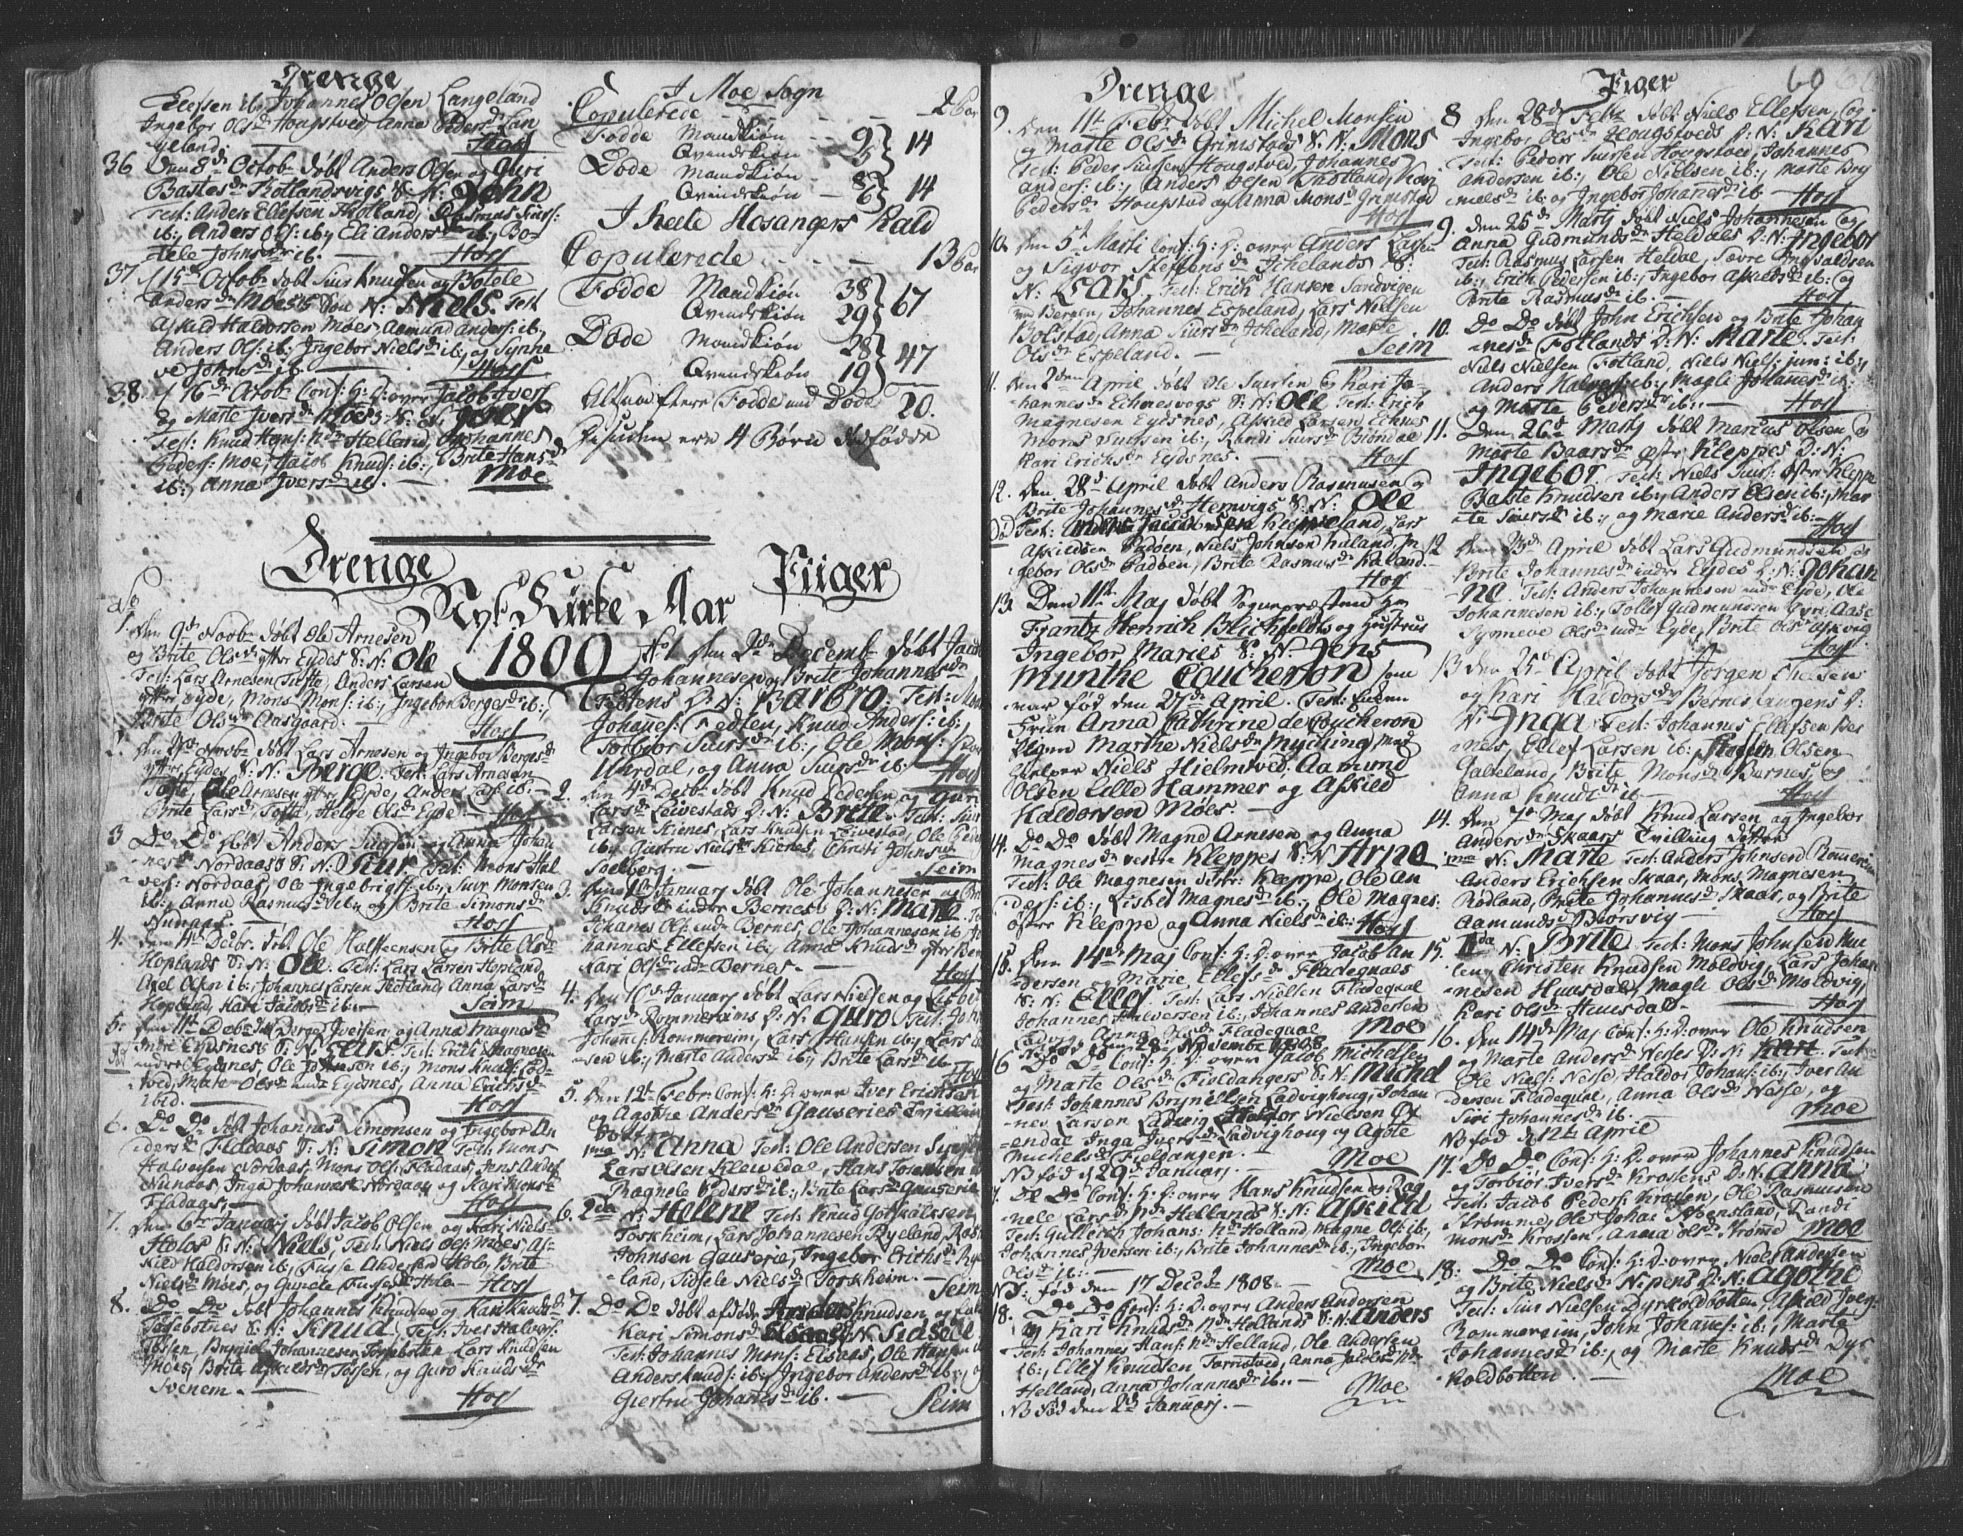 Drenge
Elefsen ib: Johannes Olsen Langeland
Ingebor Olsdr Hougstved, Anna Pedersdr Lan
geland. Hosf
36 Den 8de Octob: døbt Anders Olsen og Guri
Bastesdr Totlandsvigs S: N: John
Test: Anders Ellefsen Totland, Rasmus Siurs:
ib:, Anders Ols: ib:, Eli Andersdr ib:, Bo-
tele Johnsdr ib. Hosf
37 15de Octob: døbt Siur Knudsen og Botele
Andersdr Moes Søn N: Niels. Test
Askild Haldorsen Møes, Aamund Anders: ib:,
Anders Ols: ib:, Ingebor Nielsdr ib:, og Synne
ve Johnsdr ib. Hosf
38 16de Octob: Conf: H: D: over Jacob Ivers
og Marte Iversdr Moes S: N:
Test: Knud Hans: Helland, Johannes
Peders: Moe, Jacob Knuds: ib:, Brite Hansdr
ib:, Anna Iversdr ib. Moe
I Moe Sogn
Copulerede - - - 2 Par
Fødde Mandkiøn 9 } 14
Qvindekiøn 5
Døde Mandkiøn 8 } 14
Qvindekiøn 6
I heele Hosangers Kald
Copulerede - - - 13 Par
Fødde Mandkiøn 38 } 67
Qvindekiøn 29
Døde Mandkiøn 28 } 47
Qvindekiøn 19
Altsaa flere Fødde end Døde 20.
Desuden ere 4 Børn dødfødde
Drenge Piiger
Nyt Kirke Aar
1809
No
1. Den 9de Novb: døbt Ole Arnesen
og Brite Olsdr yttre Eydes S: N: Ole
Test: Lars Arnesen Tofte, Anders Larsen
yttre Eyde, Mons Mons: ib:, Ingebor Bergesdr ib:,
Brite Olsdr Aasgaard. Hosf
2. Novb: døbt Lars Arnesen og Ingebor Bergesdr
yttre Eyde S: N: Berge. Test: Lars Arnesen
Tofte, Ole Arnesen yttre Eyde, Anders Lars: ib:
Brite Larsdr Tofte, Helge Olsdr Eyde Hosf
3 Do Do døbt Anders Siursen og Anna Johan
nesdr Nordaas S: N: Siur. Test: Mons Hal
vors: Nordaas, Ole Ingebrigts: ib:, Siur Monsen
ib:, Anna Rasmusdr ib:, og Brite Simonsdr
Hosf
4. Den 4de Decbr: døbt Ole Halsteensen og Brite Olsdr
Hoplands S: N: Ole. Test: Lars Larsen Hopland
Axel Olsen ib:, Johannes Larsen Totland, Anna Larsdr
Hopland, Kari Jacobsdr ib: Seim
5. Den 11te Decb: døbt Berge Iversen og Anna Magnesdr
indre Eydsnes S: N: Lars. Test: Erik Magnesen
indre Eydsnes, Ole Johnsen ib:, Mons Knuds:
Marte Olsdr indre Eydsnes, Anna Erichsdr
ibid. Hosf
6. Do Do døbt Johannes Simonsen og Ingebor An
dersdr Fladaas S: N: Simon Test: Mons
Halvorsen Nordaas, Mons Ols: Fladaas, Jens Anders
Nundaas, Inga Johannesdr Nordaas og Kari Jensdr
Fladaas. Hosf
7. Den 6te Januarj døbt Jacob Olsen og Kari Niels-
Holos S: N: Niels, Test: Niels Ols: Møes, As-
kild Haldorsen ib:, Andersen Holo, Brite
Nielsdr Møes, og Gunele Holo Hosf
8. Do Do døbt Johannes Knudsen og Kari Knudsdr
Toskebotnes S: N: Knud, Test: Iver Halvors:
Tossen, Bryniel Johannesen Toskebotten, Lars Knudsen
Moe, Brite Askildsdr Tossen, og Guro Knudsdr
Svenem. Hosf
No 1 Den 2de Decemb: døbt Jacob
Johannesen og Brite Johannesdr
D: N: Barbro. Test:
Johannes: Knud Anders: ib:
Torbor Siursdr ib:, Ole Mons:
Urdal, og Anna Siursdr ib. Hosf
2. Den 4de Decbr: døbt Knud Pedersen og Guri
Larsdr Leivestads D: N: Brite Test: Siur
Larsen Kienes, Lars Knudsen Leivestad, Ole Peder
ib:, Giertru Nielsdr Kienes, Christi Johnsdr
Solberg. Seim
3. Den Januarj døbt Ole Johannesen og
Knudsdr indre Bernes D: N: Marte Test:
Johannes Ols: indre Bernes, Ole Johannesen ib Jo
hannes Ellefsen ib:, Anna Knudsdr yttre Ber
Kari Olsdr indre Bernes. Hosf
4. Den 10de Januarj døbt Lars Nielsen og Lisbet
Larsdr Rommereims D: N: Guro Test: John
Johanes: Rommereim, Lars Hansen ib:, Lars
sen ib:, Marte Andersdr ib:, Brite Larsdr ib.
Hosf
5. Den 12te Febr: Conf: H: D: over Iver Erichsen
og Agothe Andersdr Gauseries Tvilling
Dotter
1ma N: Anna Test: Ole Andersen
Lars Olsen Kleivedal, Hans
Ragnele Pedersdr ib:, Brite Larsdr Gauserie
6. 2da N: Helene Test: Knud Joskalssen
Torskheim, Lars Johannesen Ryeland, Ras
Johnsen Gauserie, Ingebor Erichsdr Rye
land, Sidsele Nielsdr Torskheim. Seim
7. Do Do døbt afdøde Anders Knudsen og
Kari Simonsdr D: N: Sidsele
Test: Johannes Mons: Eisaas, Ole Hans
Anders Knuds: ib:, Ingebor Andersdr ib:, og
Giertru Johannesdr ib. Seim
Drenge
9. Den 11te Febr: døbt Michel Monsen
og Marte Olsdr Grimstads S: N: Mons
Test: Peder Siursen Hougstved, Johannes
Anders: ib:, Anders Olsen Totland, Kari
Pedersdr Hougstad og Anna Monsdr Grimstad
Hosf
10. Den 5te Marti Conf: H: D: over Anders Lars
og Sigvor Steffensdr Ichelands S:
N: Lars Test: Erich Hansen Sandvigen
ved Bergen, Johannes Espeland, Lars Nielsen
Bolstad, Anna Siursdr Icheland, Marte
Olsdr Espeland. Seim
11. Den 2den April døbt Ole Siursen og Kari Jo-
hannesdr Echnesvogs S: N: Ole Test: Erich
Magnesen Eydsnes, Askild Larsen Echnes
Mons Siursen ib:, Randi Siursdr Biøndal
Kari Erichsdr Eydsnes. Hosf
12. Den 28de April døbt Anders Rasmusen og
Brite Johannesdr Hemvigs S: N: Ole
Test: Kleppeland, Lars
Askildsen Padøen, Niels Johnsen Kaland, In
gebor Olsdr Padøen, Brite Rasmusdr Kaland.
Hosf
13. Den 11te Maj døbt Sognepræsten Hr
Frantz Henrich Blichfeldts og Hustrus
Ingebor Maries S: N: Jens
Munthe Coucheron som
var fød den 27de April. Test: Enken
Frue Anna Cathrine de Coucheron
Marthe Nielsdr Myching, Med
hielper Niels Hielmtved. Aamund
Olsen Lille Hammer og Askild
Haldorsen Møes.
14. Do Do døbt Magne Arnesen og Anna
Magnesdr vestre Kleppes S: N: Arne
Test: Ole Magnesen vestr: Kleppe, Ole An
ders: ib:, Lisbed Magnesdr ib:, Ole Magnes:
østre Kleppe og Anna Nielsdr ib. Hosf
15. Den 14de Maj Conf: H: D: over Jacob An
dersen og Marie Ellefsdr Fladequals
S: N: Ellef. Test: Lars Nielsen Fladequal
Johannes Halvessen ib:, Johannes Andersen
Ladvig, Anna Olsdr Fladequal Moe
Fød 28 Novembr 1808
16 Do Do Conf: H: D: over Jacob Michelsen
og Marte Olsdr Fioldangers S: N: Michel
Test: Johannes Brynielsen Ladvighoug, Johan
nes Larsen Ladvig, Haldor Nielsen Ox
endal, Inga Iversdr Ladvighoug og Agote
Michelsdr Fielsangen.
NB fød d 29de Januarj. Moe
17. Do Do Conf: H: D: over Hans Knudsen og Rag
nele Larsdr Hellands S: N: Askild
Test: Gulleich Johans: Helland, Magne Ols: ib:,
Johannes Iversen ib:, Brite Johannesdr ib:, Ingebor
Olsdr ib: Moe
NB: fød den 17 Decebr 1808.
18. Do Do Conf: H: D: over Anders Andersen
og Kari Knudsdr Hellands S: N: Anders
Test: Johannes Hans: Helland, Ole Andersen
ib:, Ellef Knudsen Tarristved, Anna Jacobsdr
Helland, Anna Johannesdr ib: Moe
NB Fød den 2de Januarj.
Piger 60
8 Den 28de Febr: døbt Niels Ellefsen og
Ingebor Olsdr Hougstveds D: N: Kari
Test: Peder Siursen Hougstved, Johannes
Andersen ib:, Ole Nielsen ib:, Marte Bry
nielsdr ib:, og Ingebor Johannesdr ib Hosf
9. Den 25de Martj døbt Niels Johannesen og
Anna Gudmundsdr Heldals D: N: Ingebor
Test: Rasmus Larsen Heldal, Sævre Ingvaldsen
ib:, Erich Pedersen ib:, Ingebor Askildsdr ib: og
Brite Rasmusdr ib. Hosf
10. Do Do døbt John Erichsen og Brite Johan
nesdr Fotlands D: N: Marie, Test:
Niels Nielsen Fotland, Niels Niels: jun: ib:,
Anders Halvors: ib:, Magle Johanesdr ib:
og Marte Pedersdr ib. Hosf
11. Den 26de Martj døbt Marcus Olsen og
Marte Baarsdr østre Kleppes D: N:
Ingebor. Test: Niels Siurs: østre Kleppe
Baste Knudsen ib:, Anders Elsen ib:, Mar
te Siursdr ib:, og Marie Andersdr ib: Hosf
12 Den 3de April døbt Lars Gudmundsen og
Brite Johannesdr indre Eydes D: N: Johan
ne. Test: Anders Johannesen indre Eyde, Ole
Johannesen ib:, Tollef Gudmundsen Øvre Aase
Synneve Olsdr indre Eyde, Brite Olsdr Askvig
Hosf
13 Den 25de April døbt Jørgen Ellefsen
og Kari Haldorsdr Bernestangens D:
N: Inga Test: Johannes Ellefsen Ber
nes, Ellef Larsen ib:, Olsen
Galteland, Brite Monsdr Bernes, og
Anna Knudsdr ib Hosf
14. Den 7de Maj døbt Knud Larsen og Ingebor
Andersdr Skaars Tvilling Døttre
1ma N: Marte Test: Anders Johnsen Rommereim
Anders Erichsen Skaar, Mons Magnesen
Rødland, Brite Johannesdr Skaar, og Brite
Aamundsdr Boorsvig Hosf
15. 2da N: Brite Test: Mons Johnsen Hu
len, Christen Knudsen Moldvig, Lars Johan
nesen Huusdal, Magle Olsdr Moldvig,
Kari Olsdr Huusdal. Hosf
16. Den 14de Maj Conf: H: D: over Ole Knudsen
og Marte Andersdr Nesses D: N: Kari Test:
Ole Niels: Nesse, Haldor Johans: ib:, Iver An
dersen Fladequal, Anna Olsdr Nesse, og
Siri Johannesdr ib. Moe
NB fød d 12te April
17. Do Do Conf: H: D: over Johannes Knudsen
og Torbiør Iversdr Krossens D: N: Anna
Test: Jacob Peders: Krossen, Ole Rasmussen
Strømme, Ole Johans: Hoensland, Randi
Monsdr Krossen, Anna Olsdr Strømme Moe
18. Do Do Conf: H: D: over Niels Andersen
og Brite Nielsdr Nipens D: N: Agothe
Test: Siur Nielsen Dyrkoldbotten, Askild Ivers:
Rommereim, John Johanes: ib:, Marte
Johannesdr ib:, og Marte Knudsdr Dyr
koldbotten. Moe